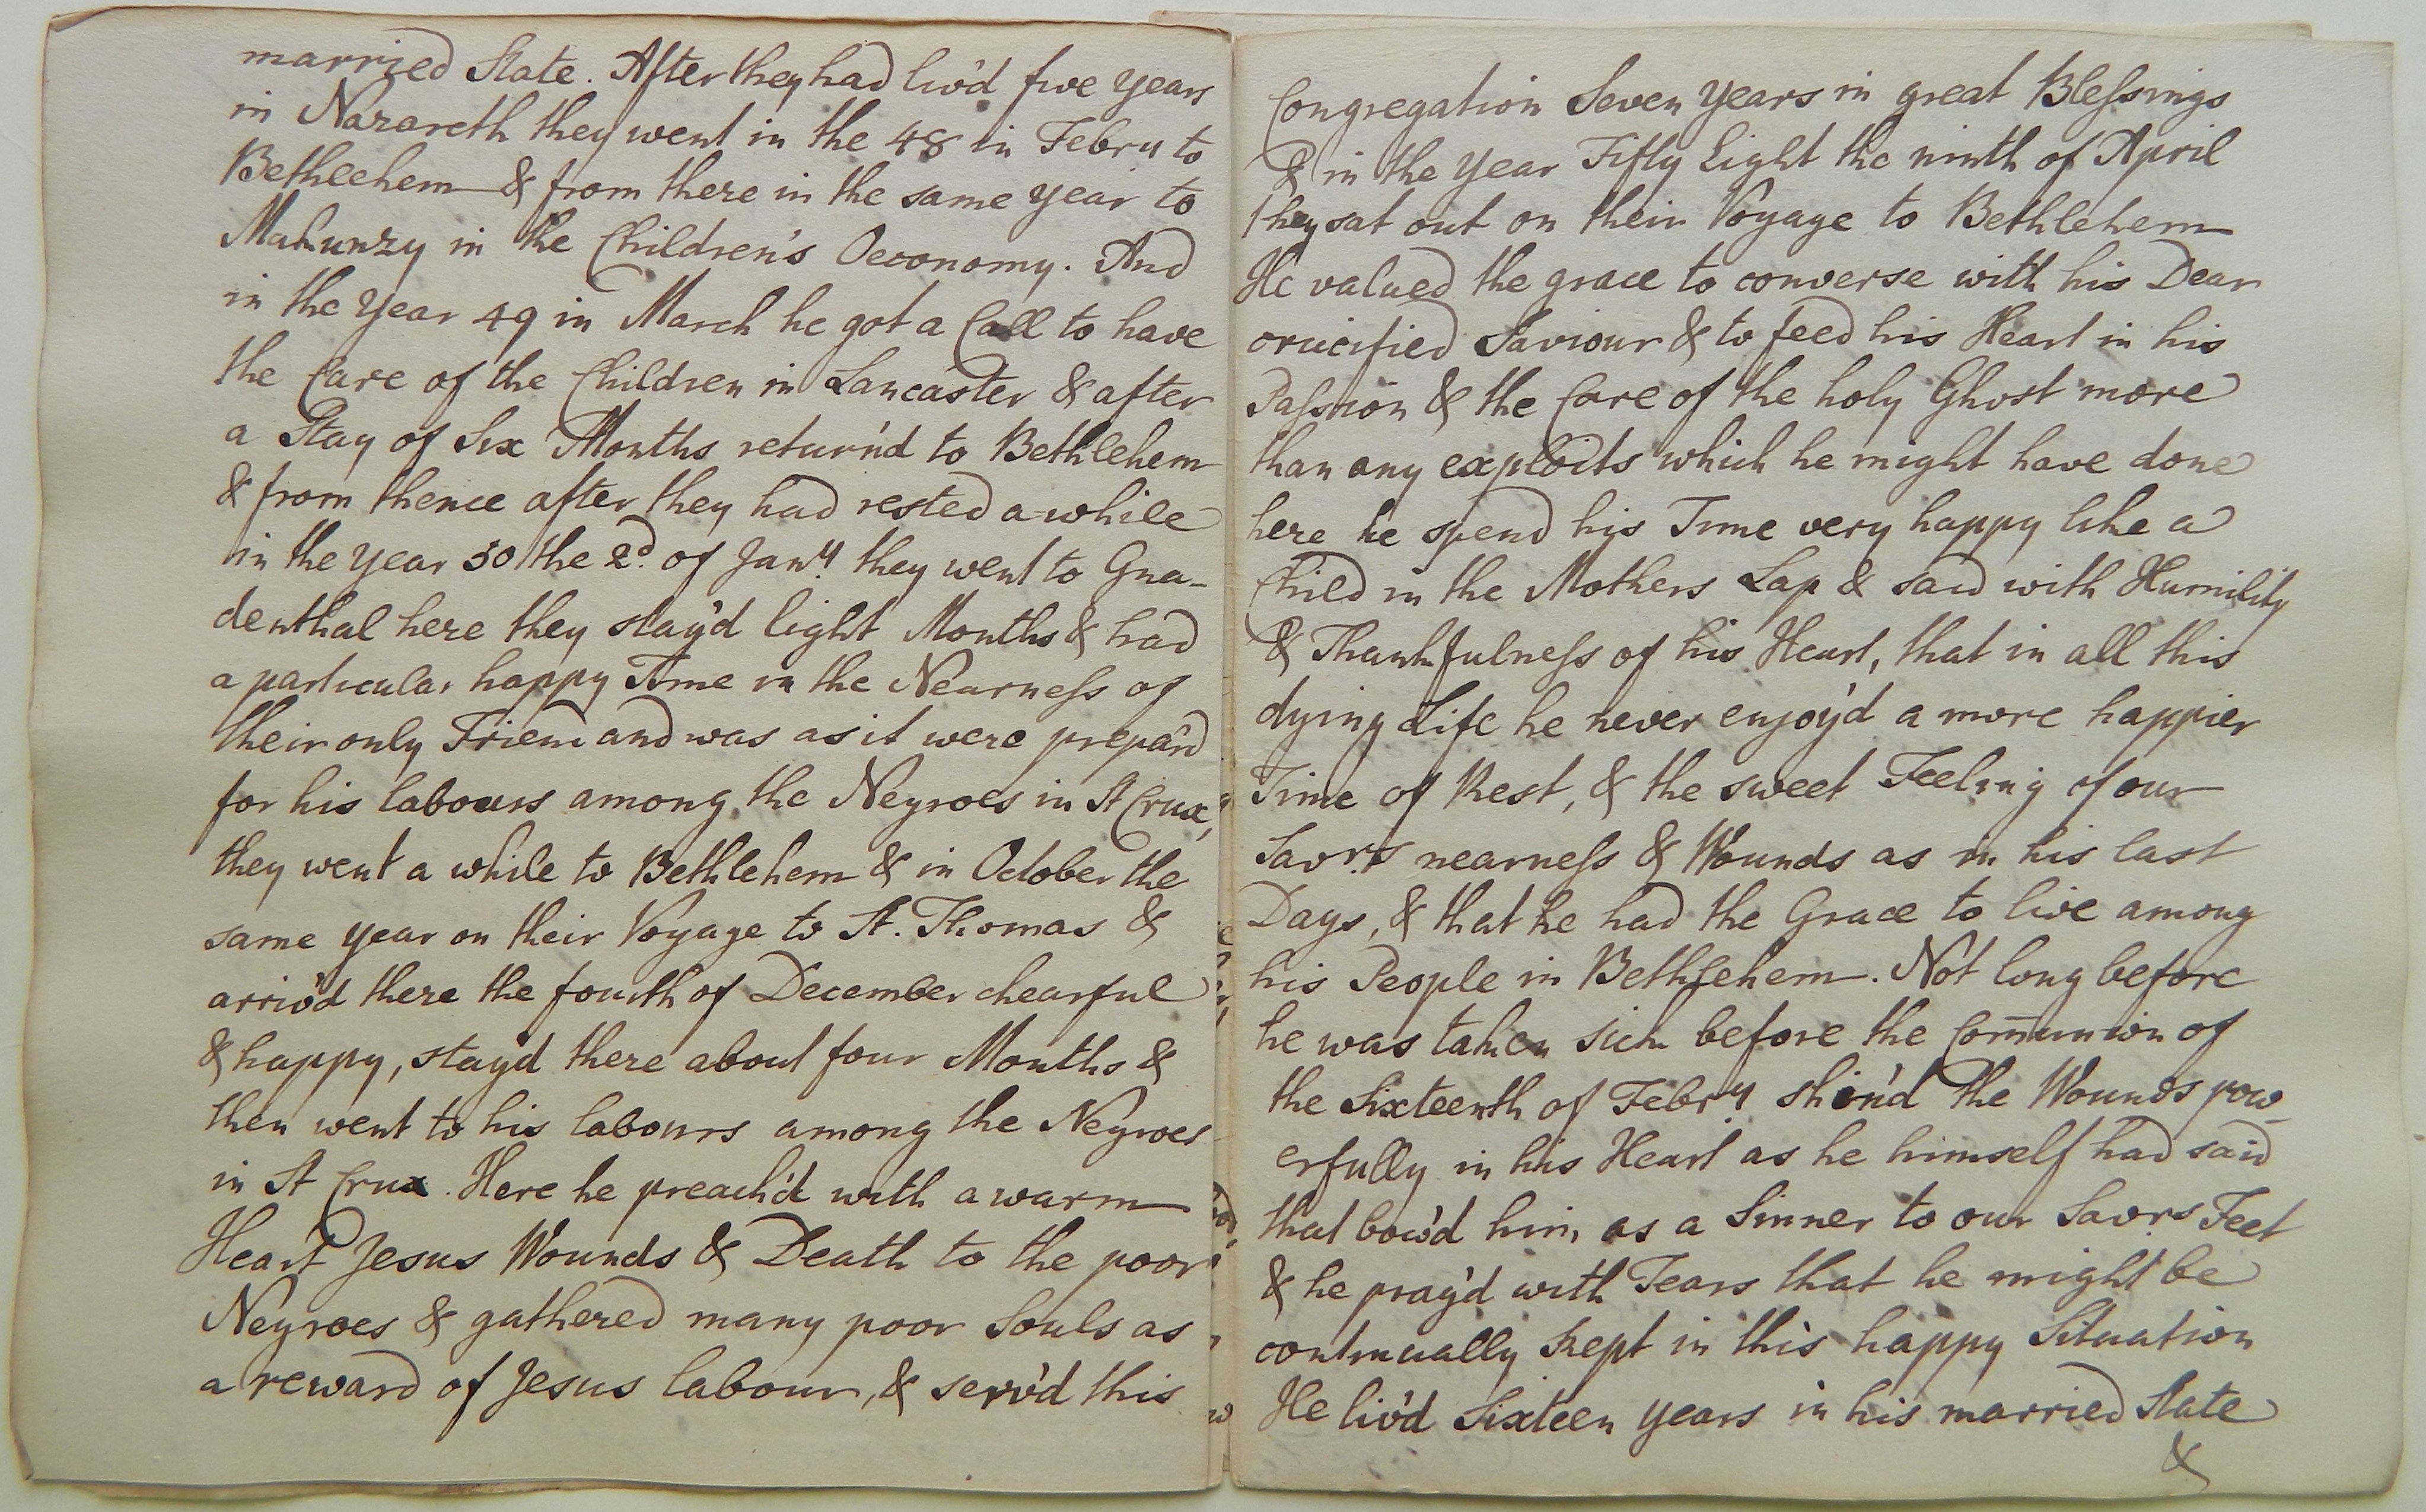 married State. After they had liv'd five years
in Nazareth they went in the 48 in Febru to
Bethlehem & from there in the same year to
Mahunzy in the Children's Oeconomy. And
in the year 49 in March he got a Call to have
the Care of the Children in Lancaster & after
a Stay of Six Months return'd to Bethlehem
& from thence after they had rested a while
in the year 50 the 2d. of Jany. they went to Gna-
denthal here they stay'd Eight Months & had
a particular happy Time in the Nearness of
their only Friend and was as it were prepar'd
for his labours among the Negroes in St Crux,
they went a while to Bethlehem & in October the
same year on their Voyage to St. Thomas &
arriv'd there the fourth of December chearful
& happy, stay'd there about four Months &
then went to his labours among the Negroes
in St Crux. Here he preach'd with a warm
Heart Jesus Wounds & Death to the poor
Negroes & gathered many poor Souls as
a reward of Jesus labour, & serv'd this
Congregation Seven years in great Blessings
& in the year Fifty Eight the ninth of April
they sat out on their Voyage to Bethlehem
He valued the grace to converse with his Dear
crucified Saviour & to feed his Heart in his
Passion & the Care of the holy Ghost more
than any exploits which he might have done
here he spend his Time very happy like a
Child in the Mothers Lap & said with Humility
& Thankfulness of his Heart, that in all this
dying Life he never enjoy'd a more happier
Time of Rest, & the sweet Feeling of our
Savrs nearness & Wounds as in his last
Days, & that he had the Grace to live among
his People in Bethlehem. Not long before
he was taken sick before the Com̄union of
the Sixteenth of Febry. shin'd the Wounds pow-
erfully in his Heart as he himself had said
that bow'd him as a Sinner to our Savrs Feet
& he pray'd with Tears that he might be
continually kept in this happy Situation
He liv'd Sixteen years in his married State
&